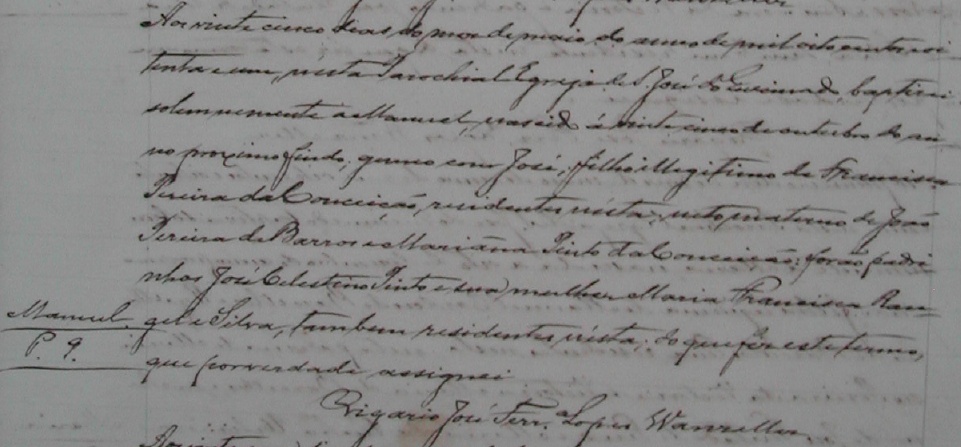 Aos vinte cinco dias do mez de maio do anno de mil oito centos oi
tenta e um, nésta Parochial Egreja de S. José do baptisei
solemnemente a Manuel, nascido á vinte cinco de outubro do an
no proximo findo, gemeo com José, filho illegitimo de Francisca
Pereira da Conceição, residentes nésta; neto materno de João
Pereira de Barros e Marianna Pinto da Conceição; forão padri
nhos José Celestino Pinto e sua mulher Maria Francisca Ran
Manuel.
gel e Silva, tambem residentes nésta, do que fiz este termo,
P. 9.
que por verdade assignei
Vigario José Ferr.ª Lopes Wanzeller